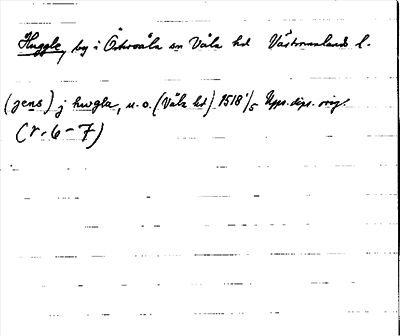 Huggle, by i Östervåla sn Våla hd Västmanlands l.
(jens) j hwgla, u.o. (Våla hd) 1518 1/5 Upps. dips. orig.
(r. 6-7)